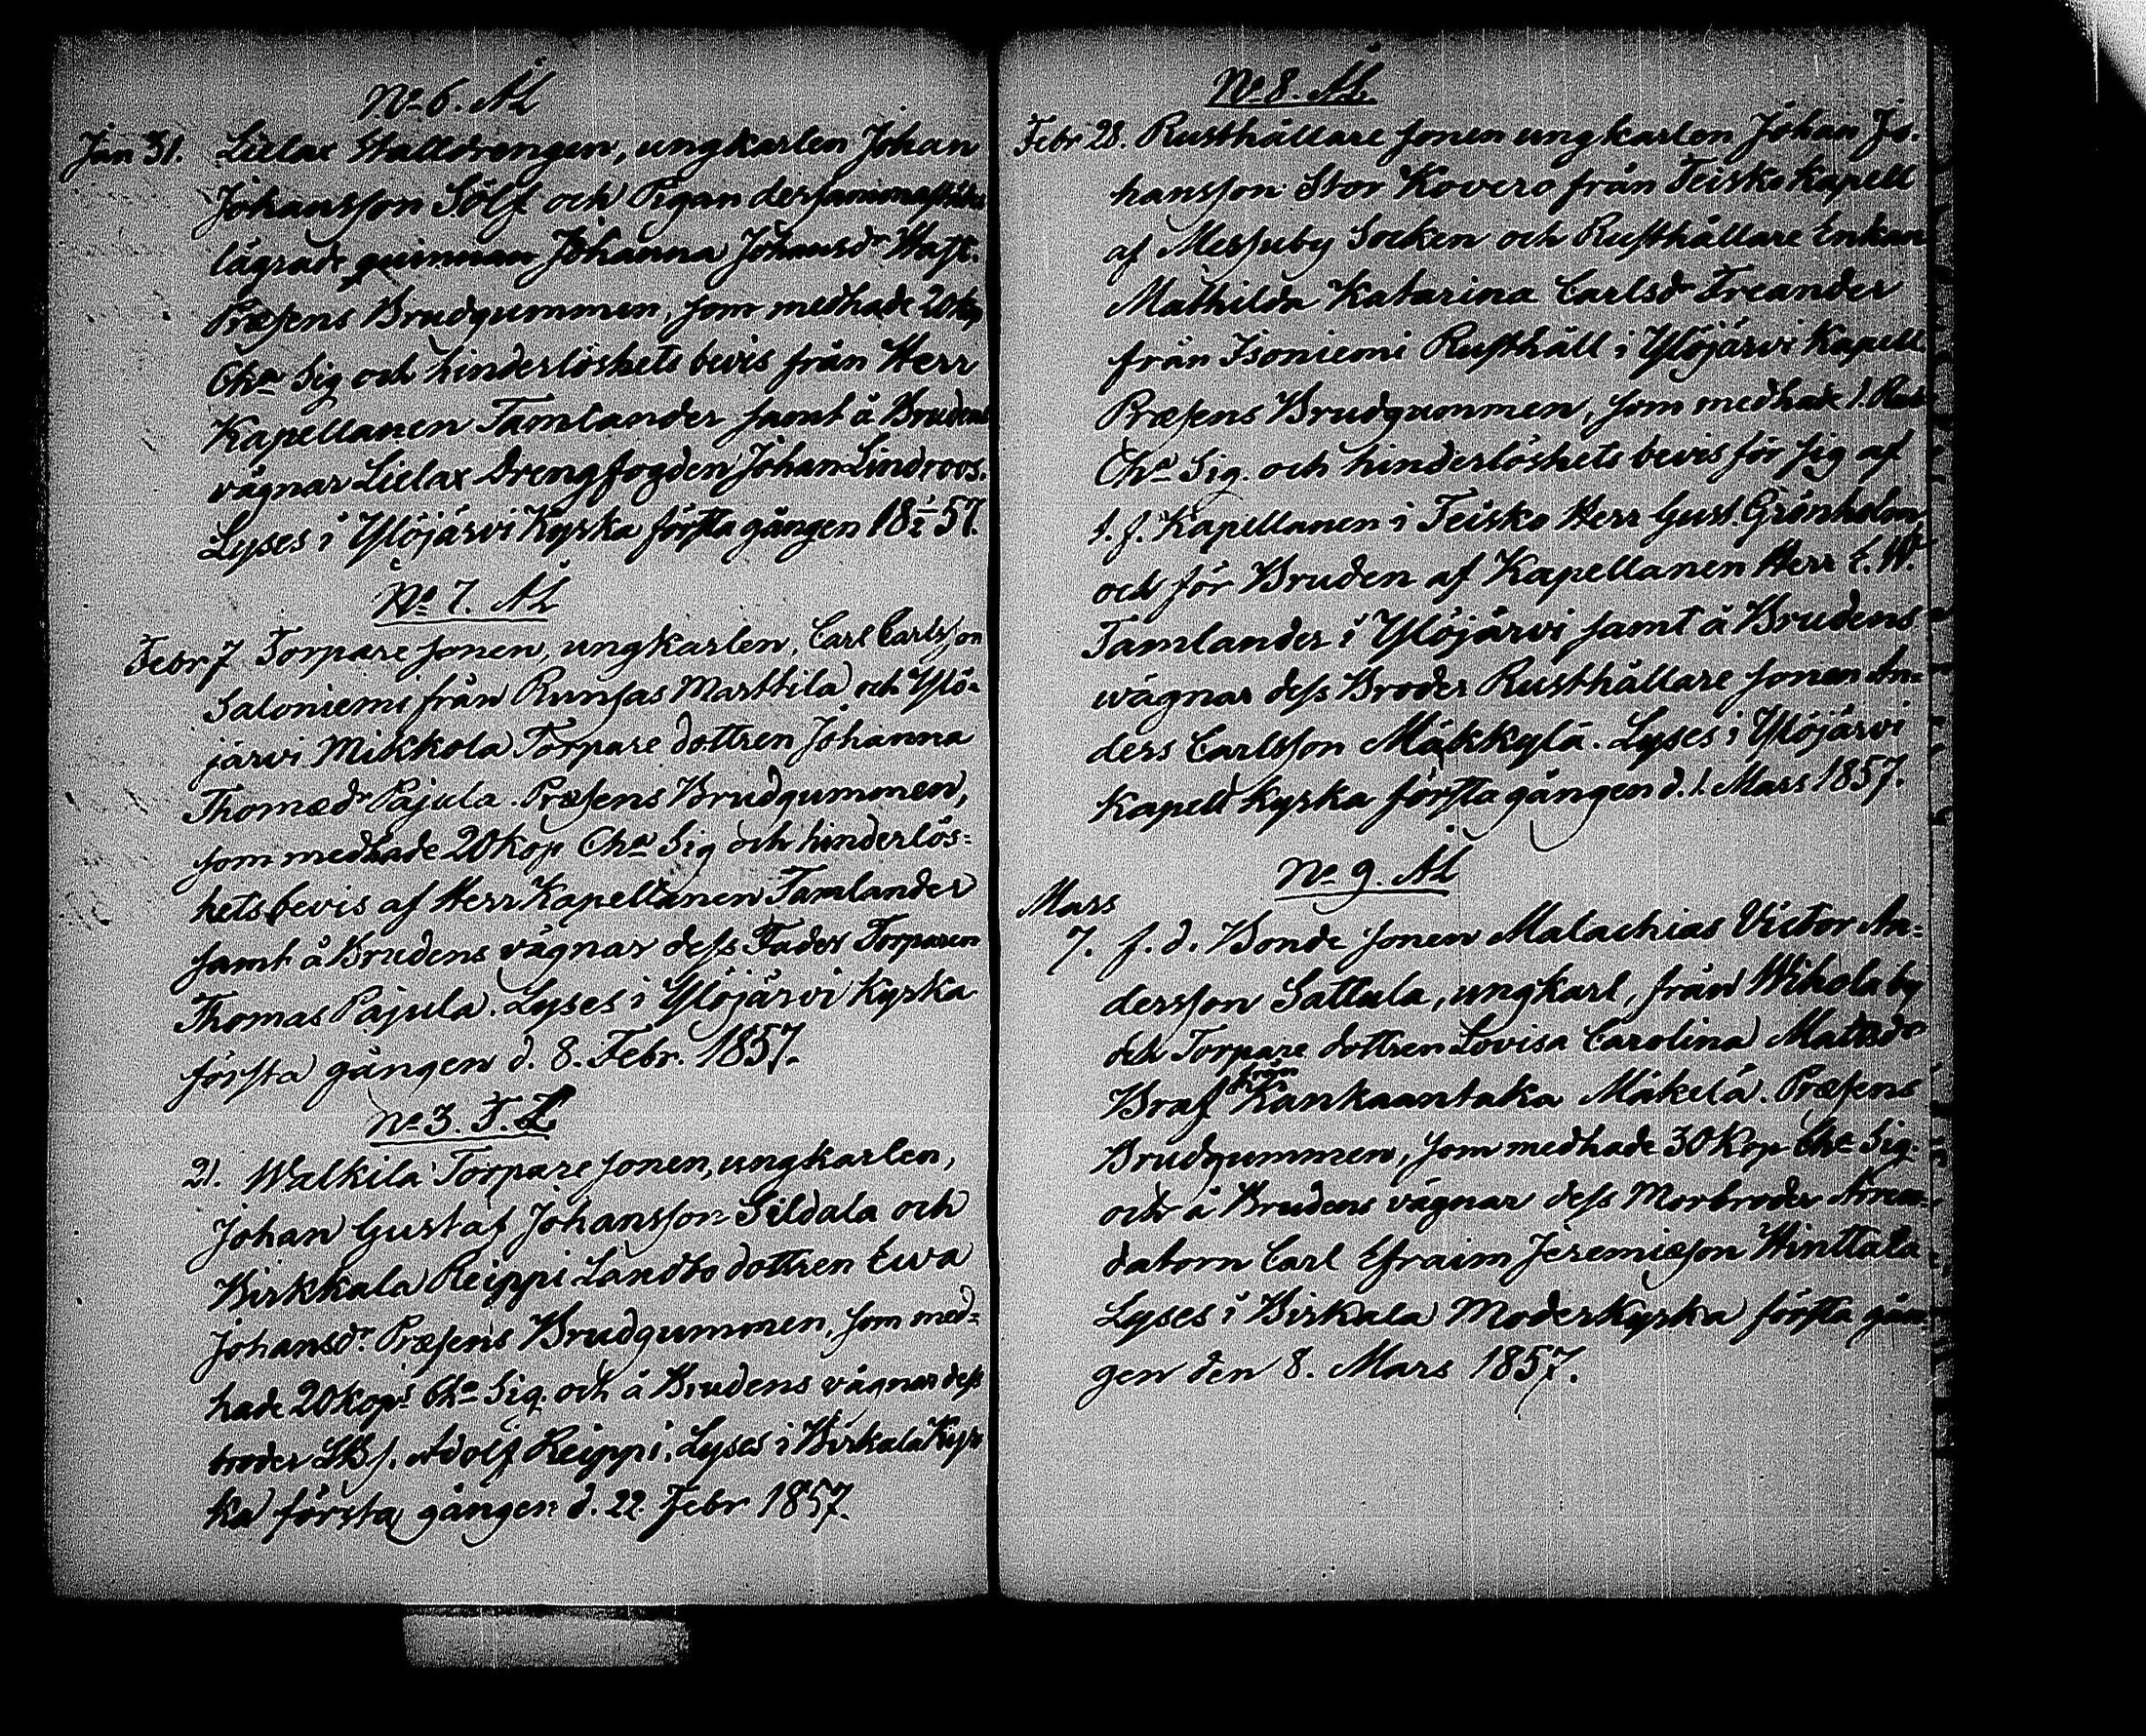 No 6. AL
Jan 31. Lielax Stalldrengen, ungkarlen Johan
Johansson Sölf och Pigan dersammastädes
lägrade quinnan Johanna Johansdr
Præsens Brudgummen, som medhade 20 kop
Cha Sig och hinderlöshets bevis från Herr
Kapellanen Tamlander samt å Brudens
vägnar Lielax Drengfogden Johan Lindroos.
Lyses i Ylöjärvi Kyrka första gången 18 1/2 57.
No 7. AL
Febr 7 Torpare sonen, ungkarlen, Carl Carlsson
Saloniemi från Runsas Marttila och Ylö-
järvi Mikkola Torpare dottren Johanna
Thomædr Pajula. Præsens Brudgummen,
som medhade 20 kop Cha Sig och hinderlös-
hetsbevis af Herr Kapellanen Tamlander
samt å Brudens vägnar dess Fader Torparen
Thomas Pajula. Lyses i Ylöjärvi Kyrka
första gången d. 8. Febr. 1857.
No 3. F. L
21. Walkila Torpare sonen, ungkarlen,
Johan Gustaf Johansson Sildala och
Birkkala Reippi Landbo dottren Ewa
Johansdr. Præsens Brudgummen, som med-
hade 20 kop. Cha Sig. och å Brudens vägnar dess
broder Adolf Reippi. Lyses i Birkala Kyr
ka första gången d. 22. Febr 1857.
No 8. AL
Febr 28. Rusthållare sonen ungkarlen Johan Jo-
hansson Stor Kovero från Teisko Kapell
af Messuby Socken och Rusthållare Enkan
Mathilda Katarina Carlsdr Freander
från Isoniemi Rusthåll i Ylöjärvi Kapell
Præsens Brudgummen, som medhade 1. Rub
Cha Sig. och hinderlöshets bevis för sig af
t. f. Kapellanen i Teisko Herr Gust. Grönholm
och för Bruden af Kapellanen Herr C. W.
Tamlander i Ylöjärvi samt å Brudens
wägnar dess Broder Rusthållare sonen An-
ders Carlsson Mäkkylä. Lyses i Ylöjärvi
Kapell Kyrka första gången d. 1. Mars 1857.
No 9. AL
Mars
7. f. d. Bonde sonen Malachias Victor An-
dersson Sattula, ungkarl, från Wihola by
och Torpare dottren Lovisa Carolina Matsdr
Braf från Kankaantaka Mäkelä. Præsens
Brudgummen, som medhade 30 Kop Cha Sig.
och å Brudens vägnar dess Morbroder Arren-
datorn Carl Efraim Jeremiæson Hinttala.
Lyses i Birkala Moderkyrka första gån-
gen den 8. Mars 1857.